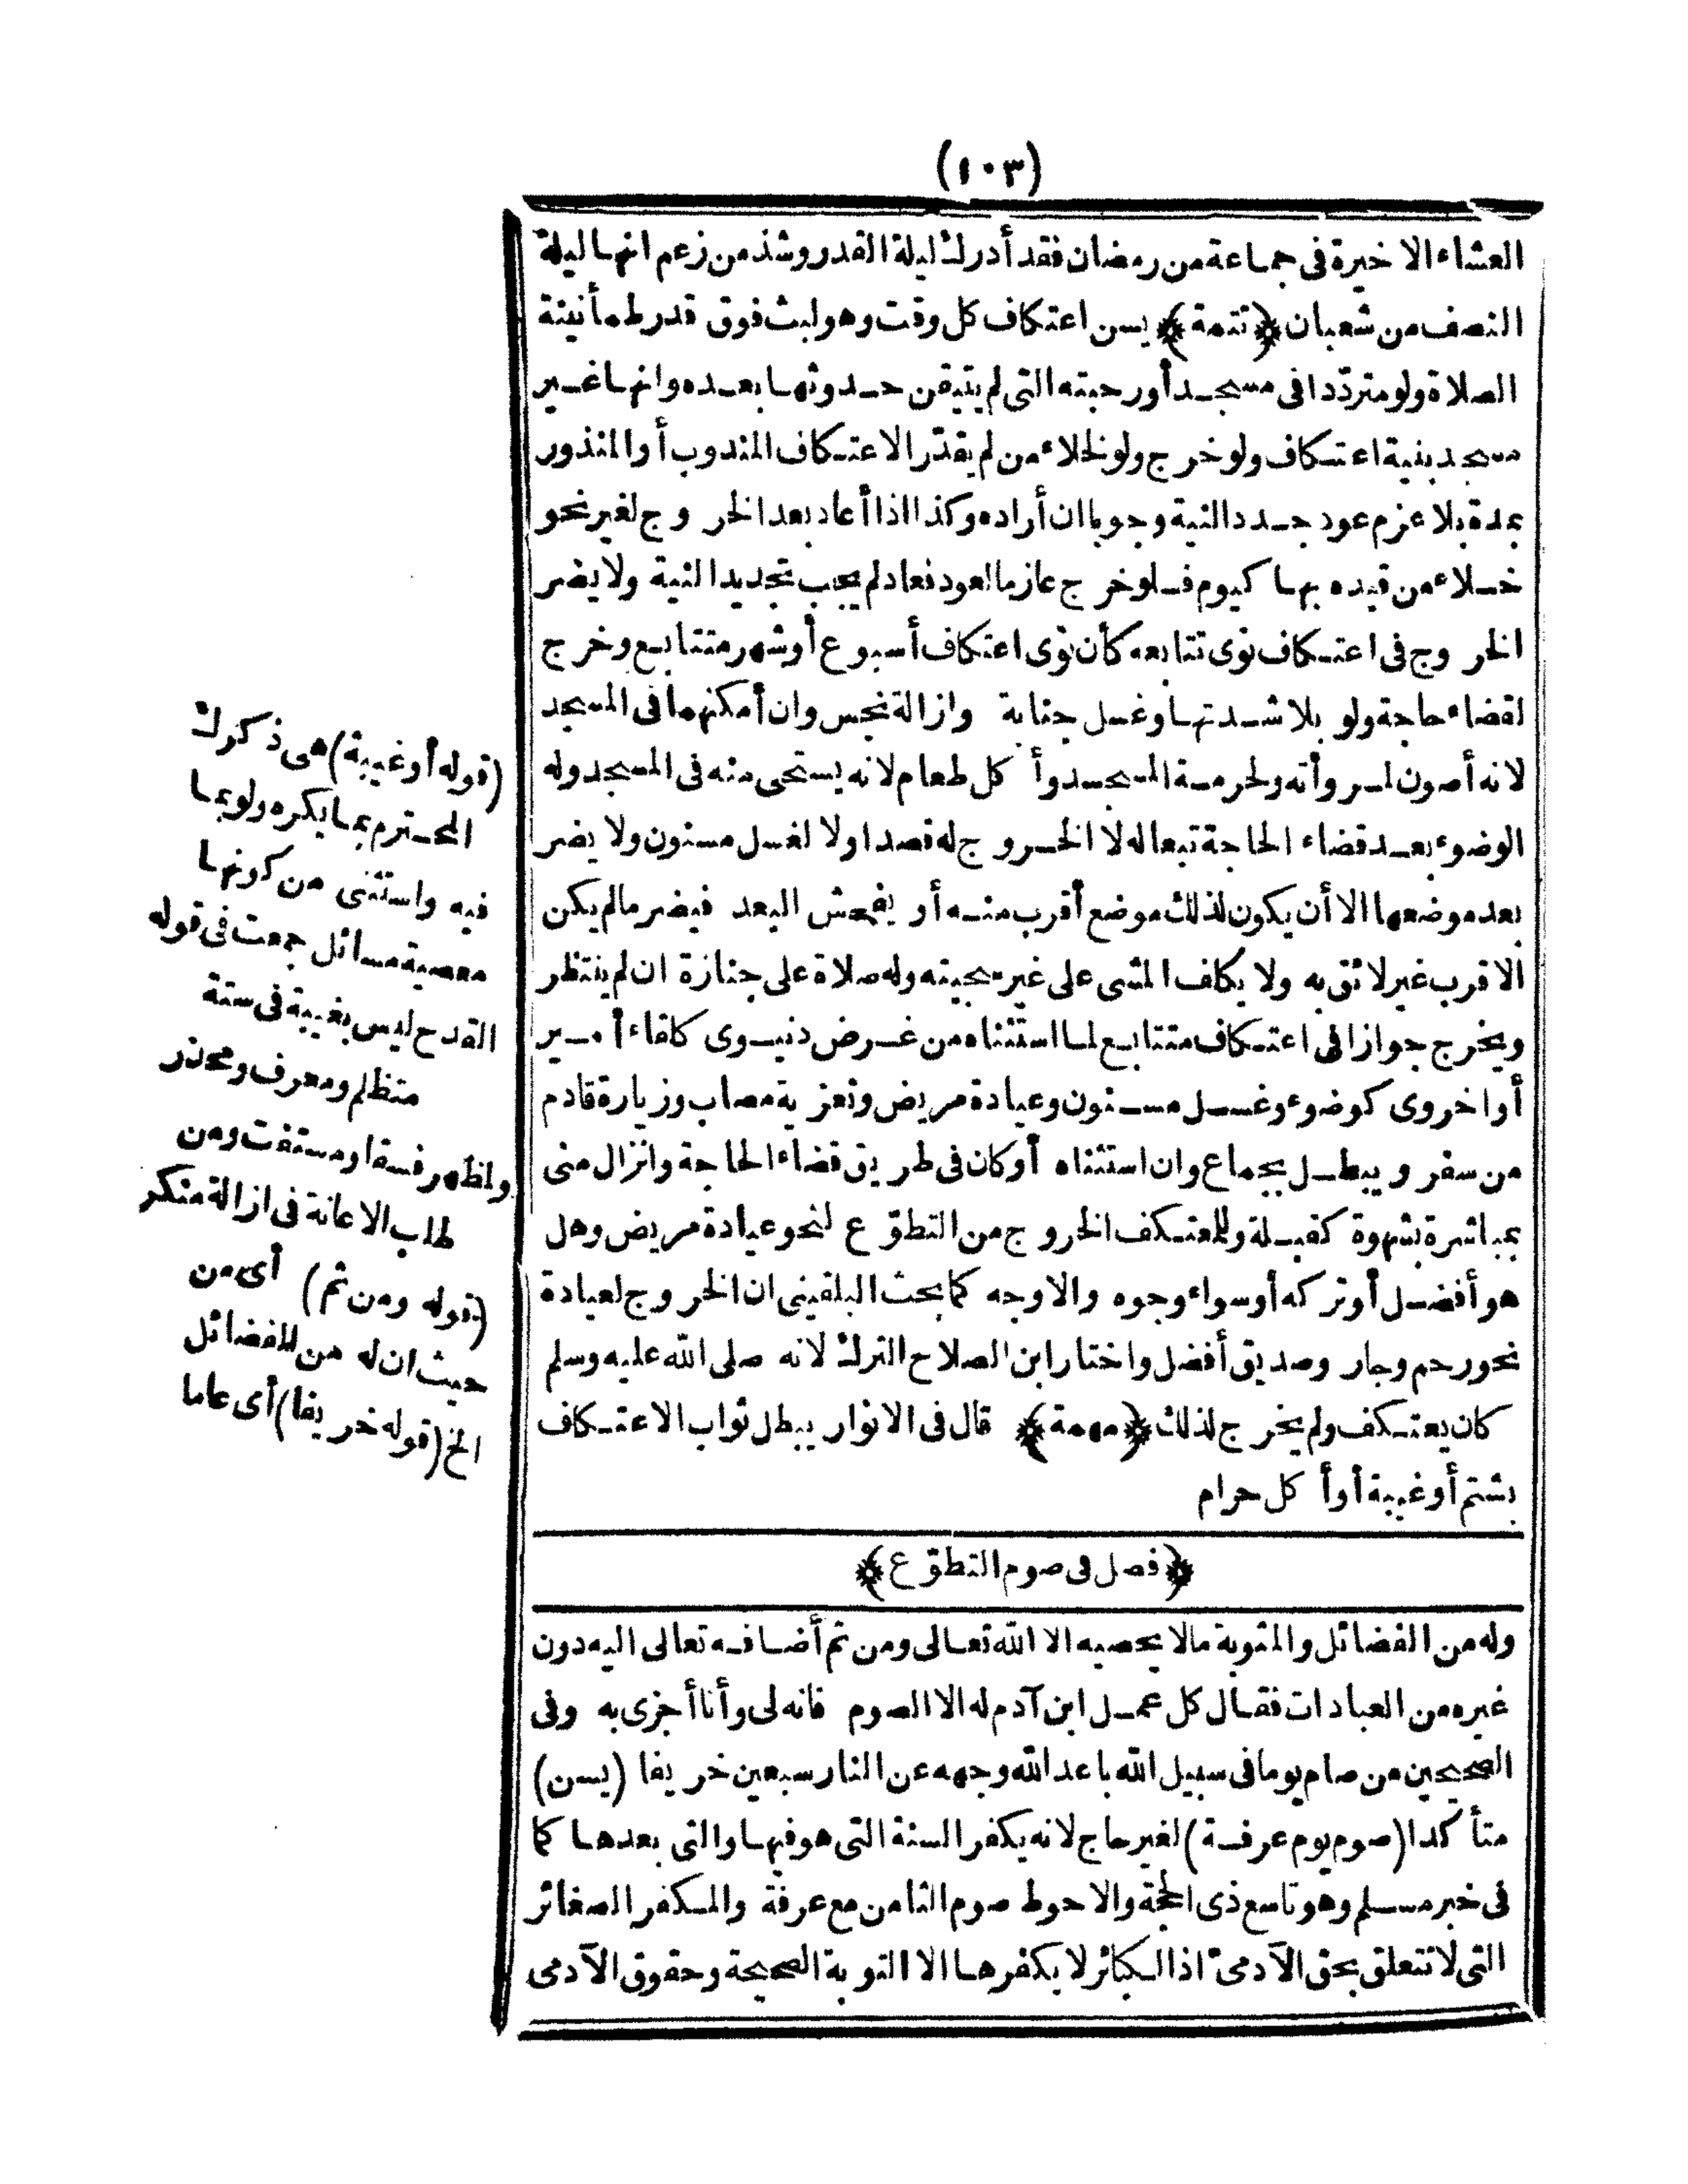 (١٠٣)
العشاء الاخيرة فى جماعة من رمضان فقد أدرك ليلة القدر وشذ من زعم انها ليلة
النصف من شعبان ﴿تتمة﴾ يسن اعتكاف كل وقت وهو لبث فوق قدر طمأنينة
الصلاة ولو متردّدا فى مسجد أو رحبته التى لم يتيقن حدوثها بعده وانها غير
مسجد بنية اعتكاف ولو خرج ولو لخلاء من لم يقدّر الاعتكاف المندوب أو المنذور
بمدة بلا عزم عود جدد النية وجوبا ان أراده وكذا اذا أعاد بعد الخروج لغير نحو
خلاء من قيده بها كيوم فلو خرج عازما لعود فعاد لم يجب تجديد النية ولا يضر
الخروج فى اعتكاف نوى تتابعه كأن نوى اعتكاف أسبوع أو شهر متتابع وخرج
لقضاء حاجة ولو بلا شدتها وغسل جنابة وازالة نجس وان أمكنهما فى المسجد
لانه أصون لمروأته ولحرمة المسجد وأكل طعام لانه يستحى منه فى المسجد وله
الوضوء بعد قضاء الحاجة تبعا له لا الخروج له قصدا ولا لغسل مسنون ولا يضر
بعد موضعها الا أن يكون لذلك موضع أقرب منه أو يفحش البعد فيضر ما لم يكن
الاقرب غير لائق به ولا يكلف المشى على غير سجيته وله صلاة على جنازة ان لم ينتظر
ويخرج جوازا فى اعتكاف متتابع لما استثناه من غرض دنيوى كلقاء أمير
أو اخروى كوضوء وغسل مسنون وعيادة مريض وتعزية مصاب وزيارة قادم
من سفر ويبطل بجماع وان استثناه أو كان فى طريق قضاء الحاجة وانزال منى
بمباشرة بشهوة كقبلة وللمعتكف الخروج من التطوّع لنحو عيادة مريض وهل
هو أفضل أو تركه أو سواء وجوه والاوجه كما بحث البلقينى ان الخروج لعيادة
نحو رحم وجار وصديق أفضل واختار ابن الصلاح الترك لانه صلى الله عليه وسلم
كان يعتكف ولم يخرج لذلك ﴿مهمة﴾ قال فى الانوار يبطل ثواب الاعتكاف
بشتم أو غيبة أو أكل حرام
﴿فصل فى صوم التطوّع﴾
وله من الفضائل والمثوبة مالا يحصيه الا الله تعالى ومن ثم أضافه تعالى اليه دون
غيره من العبادات فقال كل عمل ابن آدم له الا الصوم فانه لى وأنا أجزى به وفى
الصحيحين من صام يوما فى سبيل الله باعد الله وجهه عن النار سبعين خريفا (يسن)
متأكدا (صوم يوم عرفة) لغير حاج لانه يكفر السنة التى هو فيها والتى بعدها كما
فى خبر مسلم وهو تاسع ذى الحجة والاحوط صوم الثامن مع عرفة والمكفر الصغائر
التى لا تتعلق بحق الآدمىّ اذ الكبائر لا يكفرها الا التوبة الصحيحة وحقوق الآدمى
(قوله أو غيبة) هى ذكرك
المحترم بما يكره ولو بما
فيه واستثنى من كونها
معصية مسائل جمعت فى قوله
القدح ليس بغيبة فى ستة
متظلم ومعرف ومحذر
ولمظهر فسقا ومستفت ومن
طلب الاعانة فى ازالة منكر
(قوله ومن ثم) أى من
حيث ان له من الفضائل
الخ (قوله خريفا) أى عاما